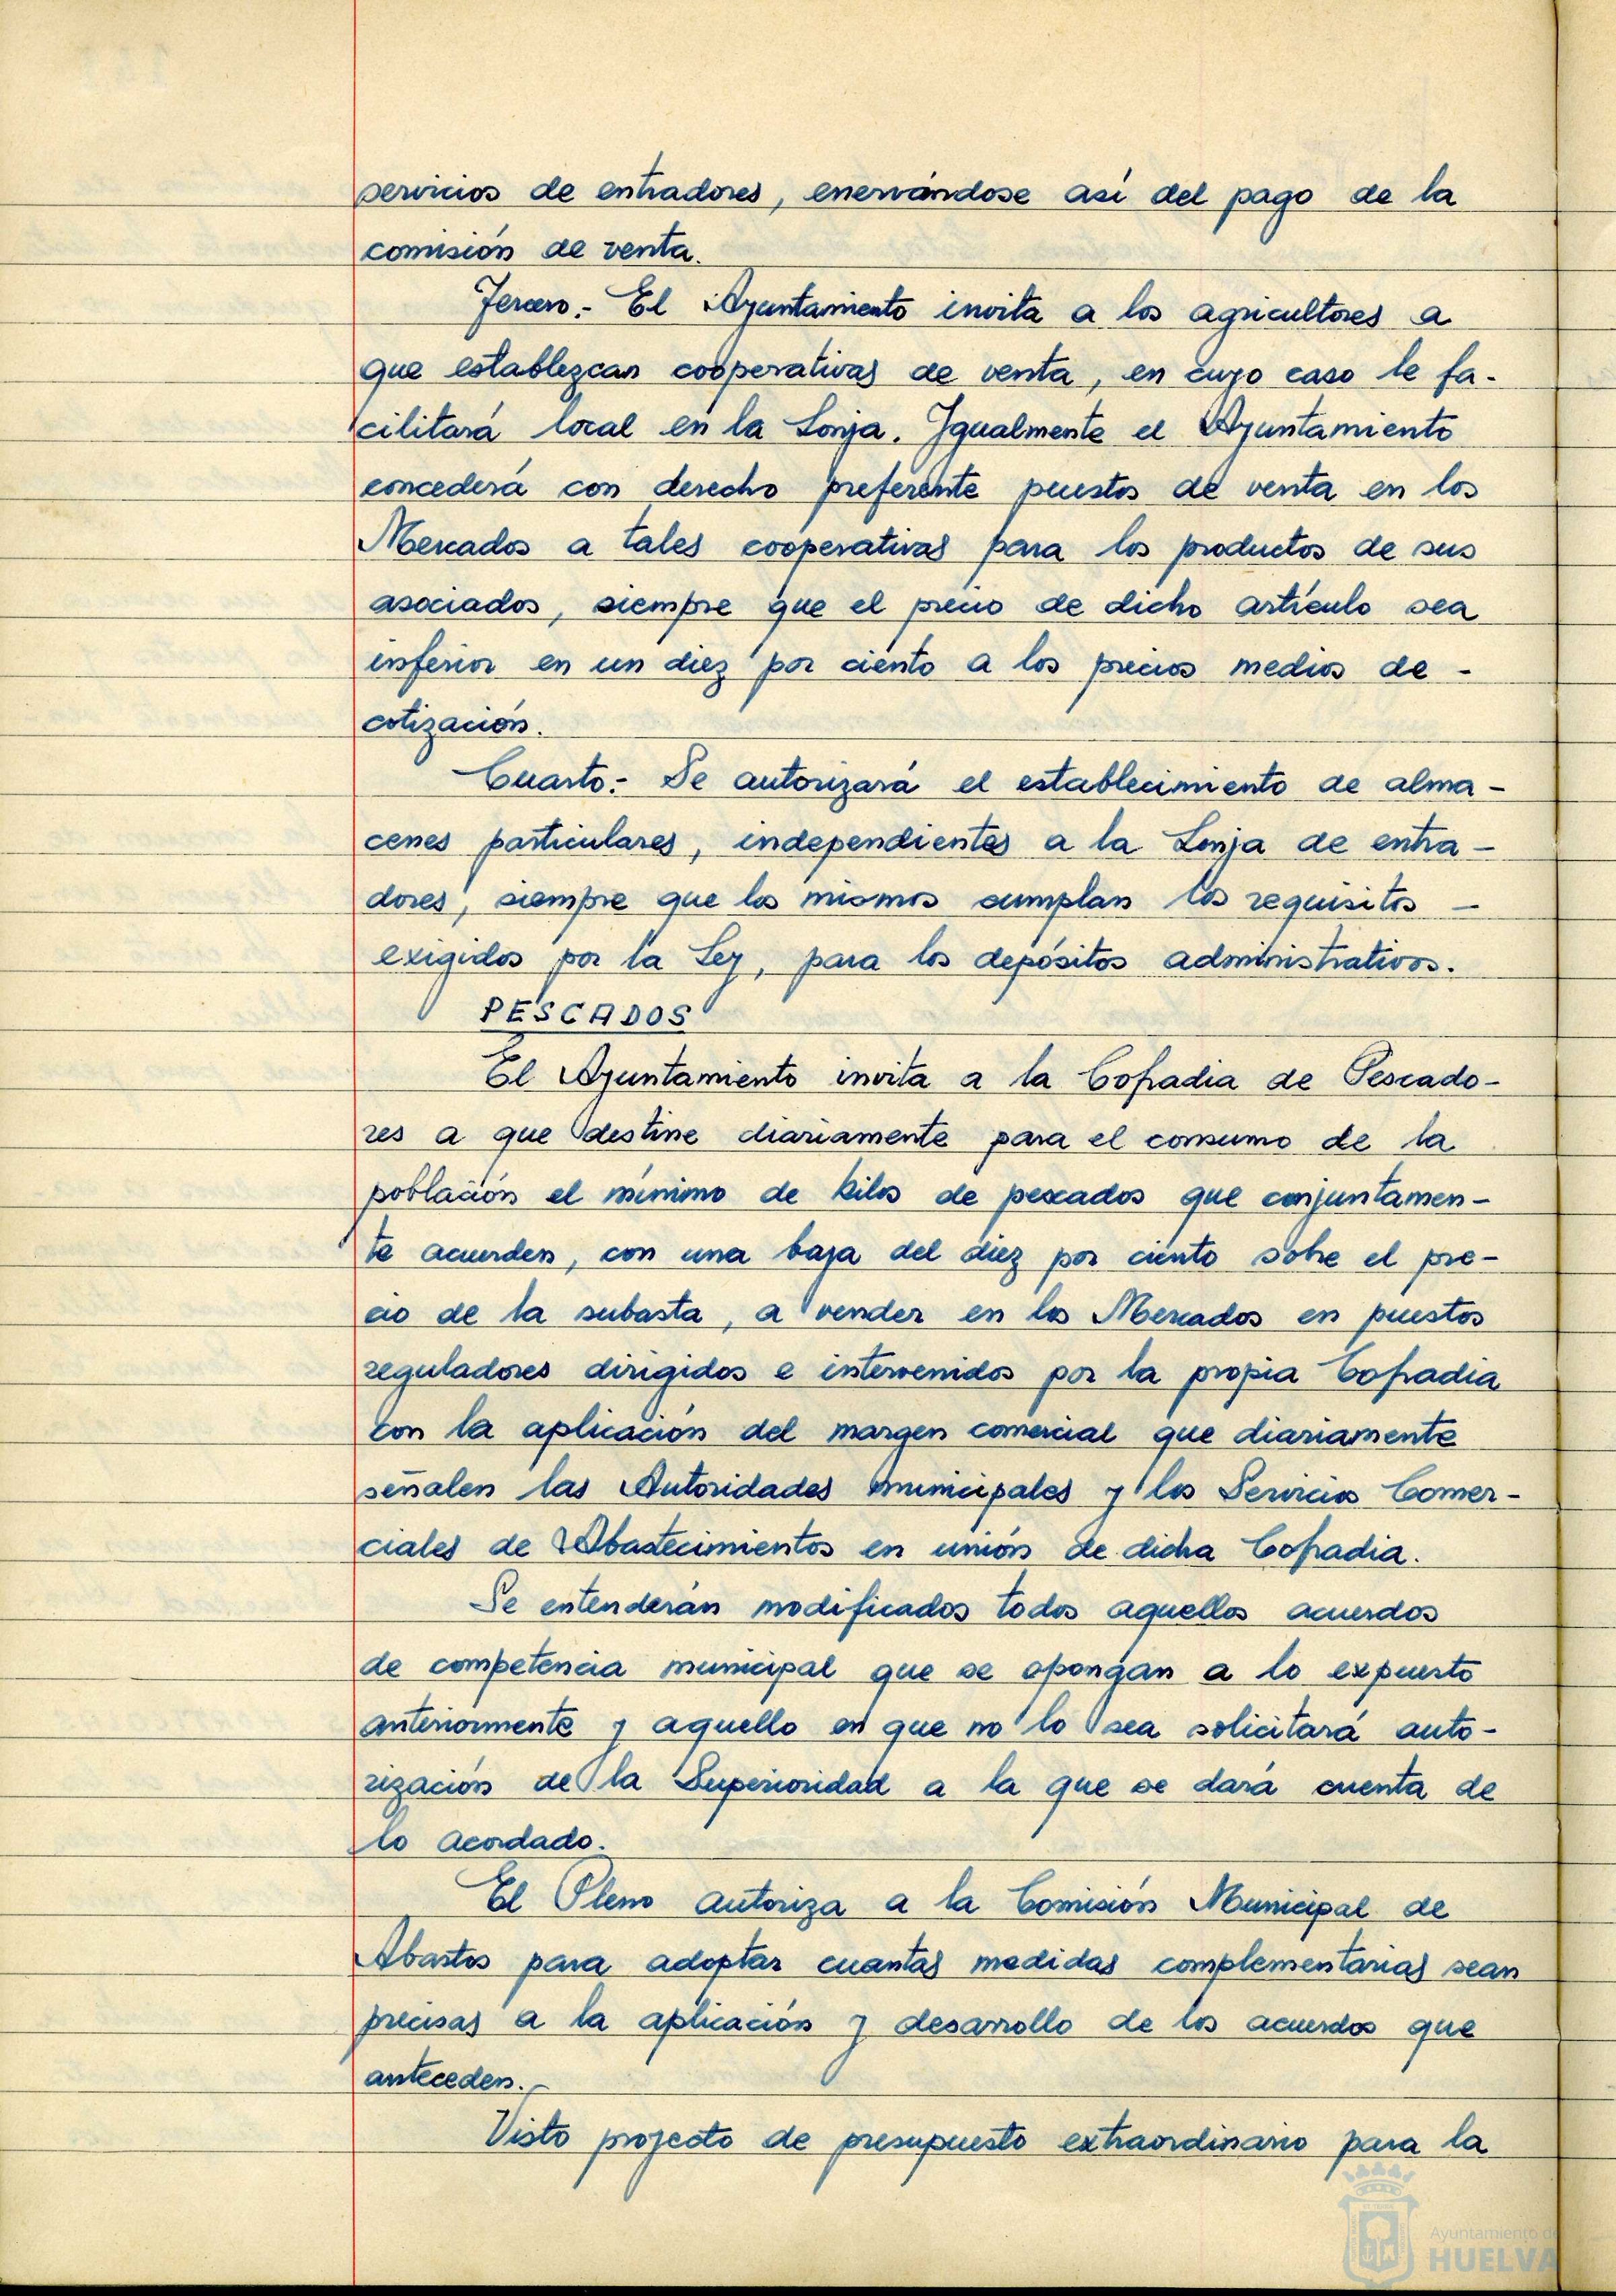 servicios de entradores, enervándose así del pago de la
comisión de venta.
Tercero.- El Ayuntamiento invita a los agricultores a
que establezcan cooperativas de venta, en cuyo caso le fa-
cilitará local en la Lonja. Igualmente el Ayuntamiento
concederá con derecho preferente puestos de venta en los
Mercados a tales cooperativas para los productos de sus
asociados, siempre que el precio de dicho artículo sea
inferior en un diez por ciento a los precios medios de -
cotización.
Cuarto.- Se autorizará el establecimiento de alma-
cenes particulares, independientes a la Lonja de entra-
dores, siempre que los mismos cumplan los requisitos -
exigidos por la Ley, para los depósitos administrativos.
PESCADOS
El Ayuntamiento invita a la Cofradia de Pescado-
res a que destine diariamente para el consumo de la
población el mínimo de kilos de pescados que conjuntamen-
te acuerden, con una baja del diez por ciento sobre el pre-
cio de la subasta, a vender en los Mercados en puestos
reguladores dirigidos e intervenidos por la propia Cofradia
con la aplicación del margen comercial que diariamente
señalen las Autoridades municipales y los Servicios Comer-
ciales de Abastecimientos en unión de dicha Cofradia.
Se entenderán modificados todos aquellos acuerdos
de competencia municipal que se opongan a lo expuesto
anteriormente y aquello en que no lo sea solicitará auto-
rización de la Superioridad a la que se dará cuenta de
lo acordado.
El Pleno autoriza a la Comisión Municipal de
Abastos para adoptar cuantas medidas complementarias sean
precisas a la aplicación y desarrollo de los acuerdos que
anteceden.-
Visto proyecto de presupuesto extraordinario para la
Ayuntamiento de
HUELVA